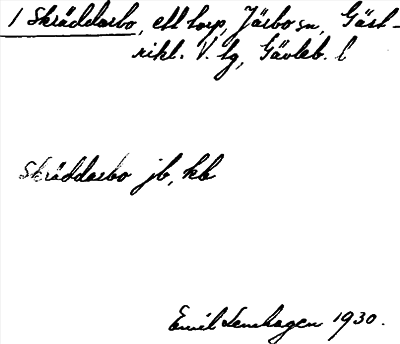 1 Skräddarbo, ett torp, Järbo sn, Gäst-
rikl. V. tg, Gävleb. l
Skräddarbo jb, kb
Emil Lenhagen 1930.